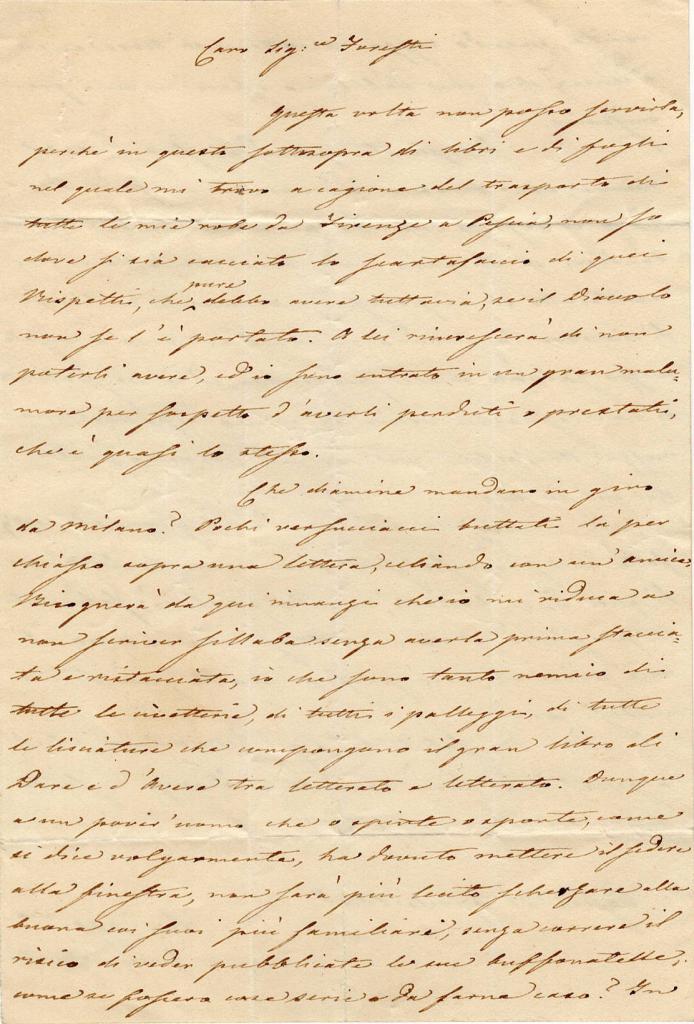 Caro Sig:re Foresti
Questa volta non posso servirla,
perchè in questo sottosopra di libri e di fogli
nel quale mi trovo a cagione del trasporto di
tutte le mie robe da Firenze a Pescia, non so
dove si sia cacciato lo scartafaccio di quei
Rispetti, che pure debbo avere tuttavia, se il Diavolo
non se l'è portato. A lei rincrescerà di non
poterli avere, ed io sono entrato in un gran malu-
more per sospetto d'averli perduti o prestati,
che è quasi lo stesso.
Che diamine mandano in giro
da Milano? Pochi versucciacci buttati là per
chiasso sopra una lettera, celiando con un'amica.
Bisognerà da qui innanzi che io mi riduca a
non scriver sillaba senza averla prima staccia-
ta e ristacciata, io che sono tanto nemico di
tutte le civetterie, di tutti i palleggi, di tutte
le lisciature che compongono il gran libro di
Dare e d'Avere tra letterato e letterato. Dunque
a un pover'uomo che o spinte o sponte, come
si dice volgarmente, ha dovuto mettere il sedere
alla finestra, non sarà più lecito scherzare alla
buona coi suoi più familiari, senza correre il
risico di veder pubblicate le sue buffonatelle,
come se fossero cose serie o da farne caso? In